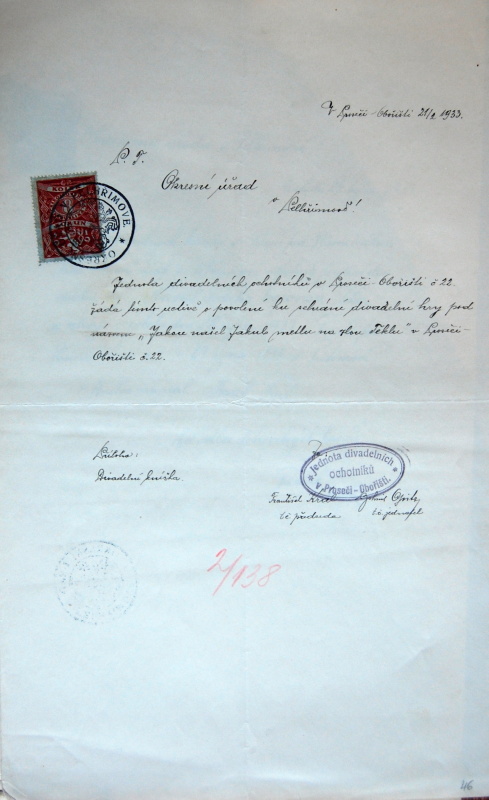 V Proseči-Obořišti 21/2 1933.
P. T.
Okresní úřad
v Pelhřimově!
Jednota divadelních ochotníků v Proseči-Obořišti č 22
žádá tímto uctivě o povolení ku sehrání divadelní hry pod
názvem „Jakou našel Jakub metlu na zlou Teklu" v Proseči-
Obořišti č. 22.
Příloha:
Divadelní knížka.
Za
Jednota divadelních
ochotníků
v Proseči-Obořišti.
František
t. č. předseda
t. č. jednatel
2/138
46